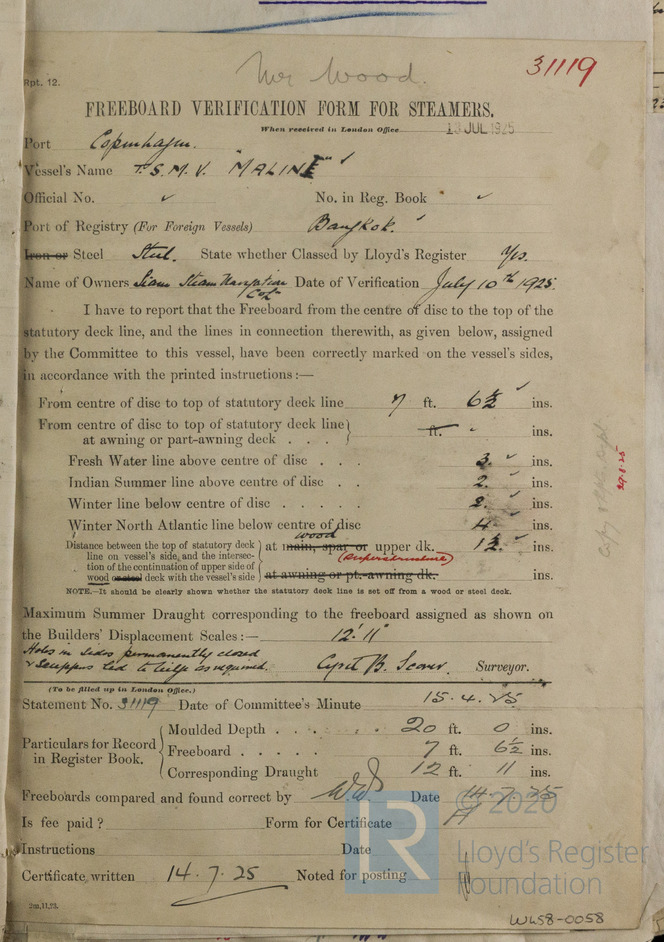 Mr Wood.
31119
Rpt. 12.
FREEBOARD VERIFICATION FORM FOR STEAMERS.
When received in London Office 13 JUL 1925
Port Copenhagen.
Vessel's Name T.S.M.V. "MALINI"
Official No. No. in Reg. Book
Port of Registry (For Foreign Vessels) Bangkok.
Iron or Steel Steel. State whether Classed by Lloyd's Register Yes.
Name of Owners Siam Steam Navigation Coy Date of Verification July 10th 1925.
I have to report that the Freeboard from the centre of disc to the top of the
statutory deck line, and the lines in connection therewith, as given below, assigned
by the Committee to this vessel, have been correctly marked on the vessel's sides,
in accordance with the printed instructions:—
From centre of disc to top of statutory deck line 7 ft. 6½ ins.
From centre of disc to top of statutory deck line
at awning or part-awning deck . . . ft. ins.
Fresh Water line above centre of disc . . . 3. ins.
Indian Summer line above centre of disc . . 2. ins.
Winter line below centre of disc . . . . . 2. ins.
Winter North Atlantic line below centre of disc 4. ins.
Distance between the top of statutory deck
line on vessel's side, and the intersec-
tion of the continuation of upper side of
wood or steel deck with the vessel's side
wood
at main, spar or upper dk. 1½. ins.
(superstructure)
at awning or pt.-awning dk. ins.
NOTE.—It should be clearly shown whether the statutory deck line is set off from a wood or steel deck.
Maximum Summer Draught corresponding to the freeboard assigned as shown on
the Builders' Displacement Scales:— 12' 11"
Holes in sides permanently closed
& scuppers led to bilge as required.
Cyril B. Scorer. Surveyor.
(To be filled up in London Office.)
Statement No. 31119 Date of Committee's Minute 15.4.25
Particulars for Record
in Register Book.
Moulded Depth . . . . . . 20 ft. 0 ins.
Freeboard . . . . . 7 ft. 6½ ins.
Corresponding Draught 12 ft. 11 ins.
Freeboards compared and found correct by Date 14.7.25
Is fee paid? Form for Certificate
Instructions Date
Certificate written 14.7.25 Noted for posting
2m,11,23.
29.8.25
© 2020
Lloyd's Register
Foundation
W458-0058